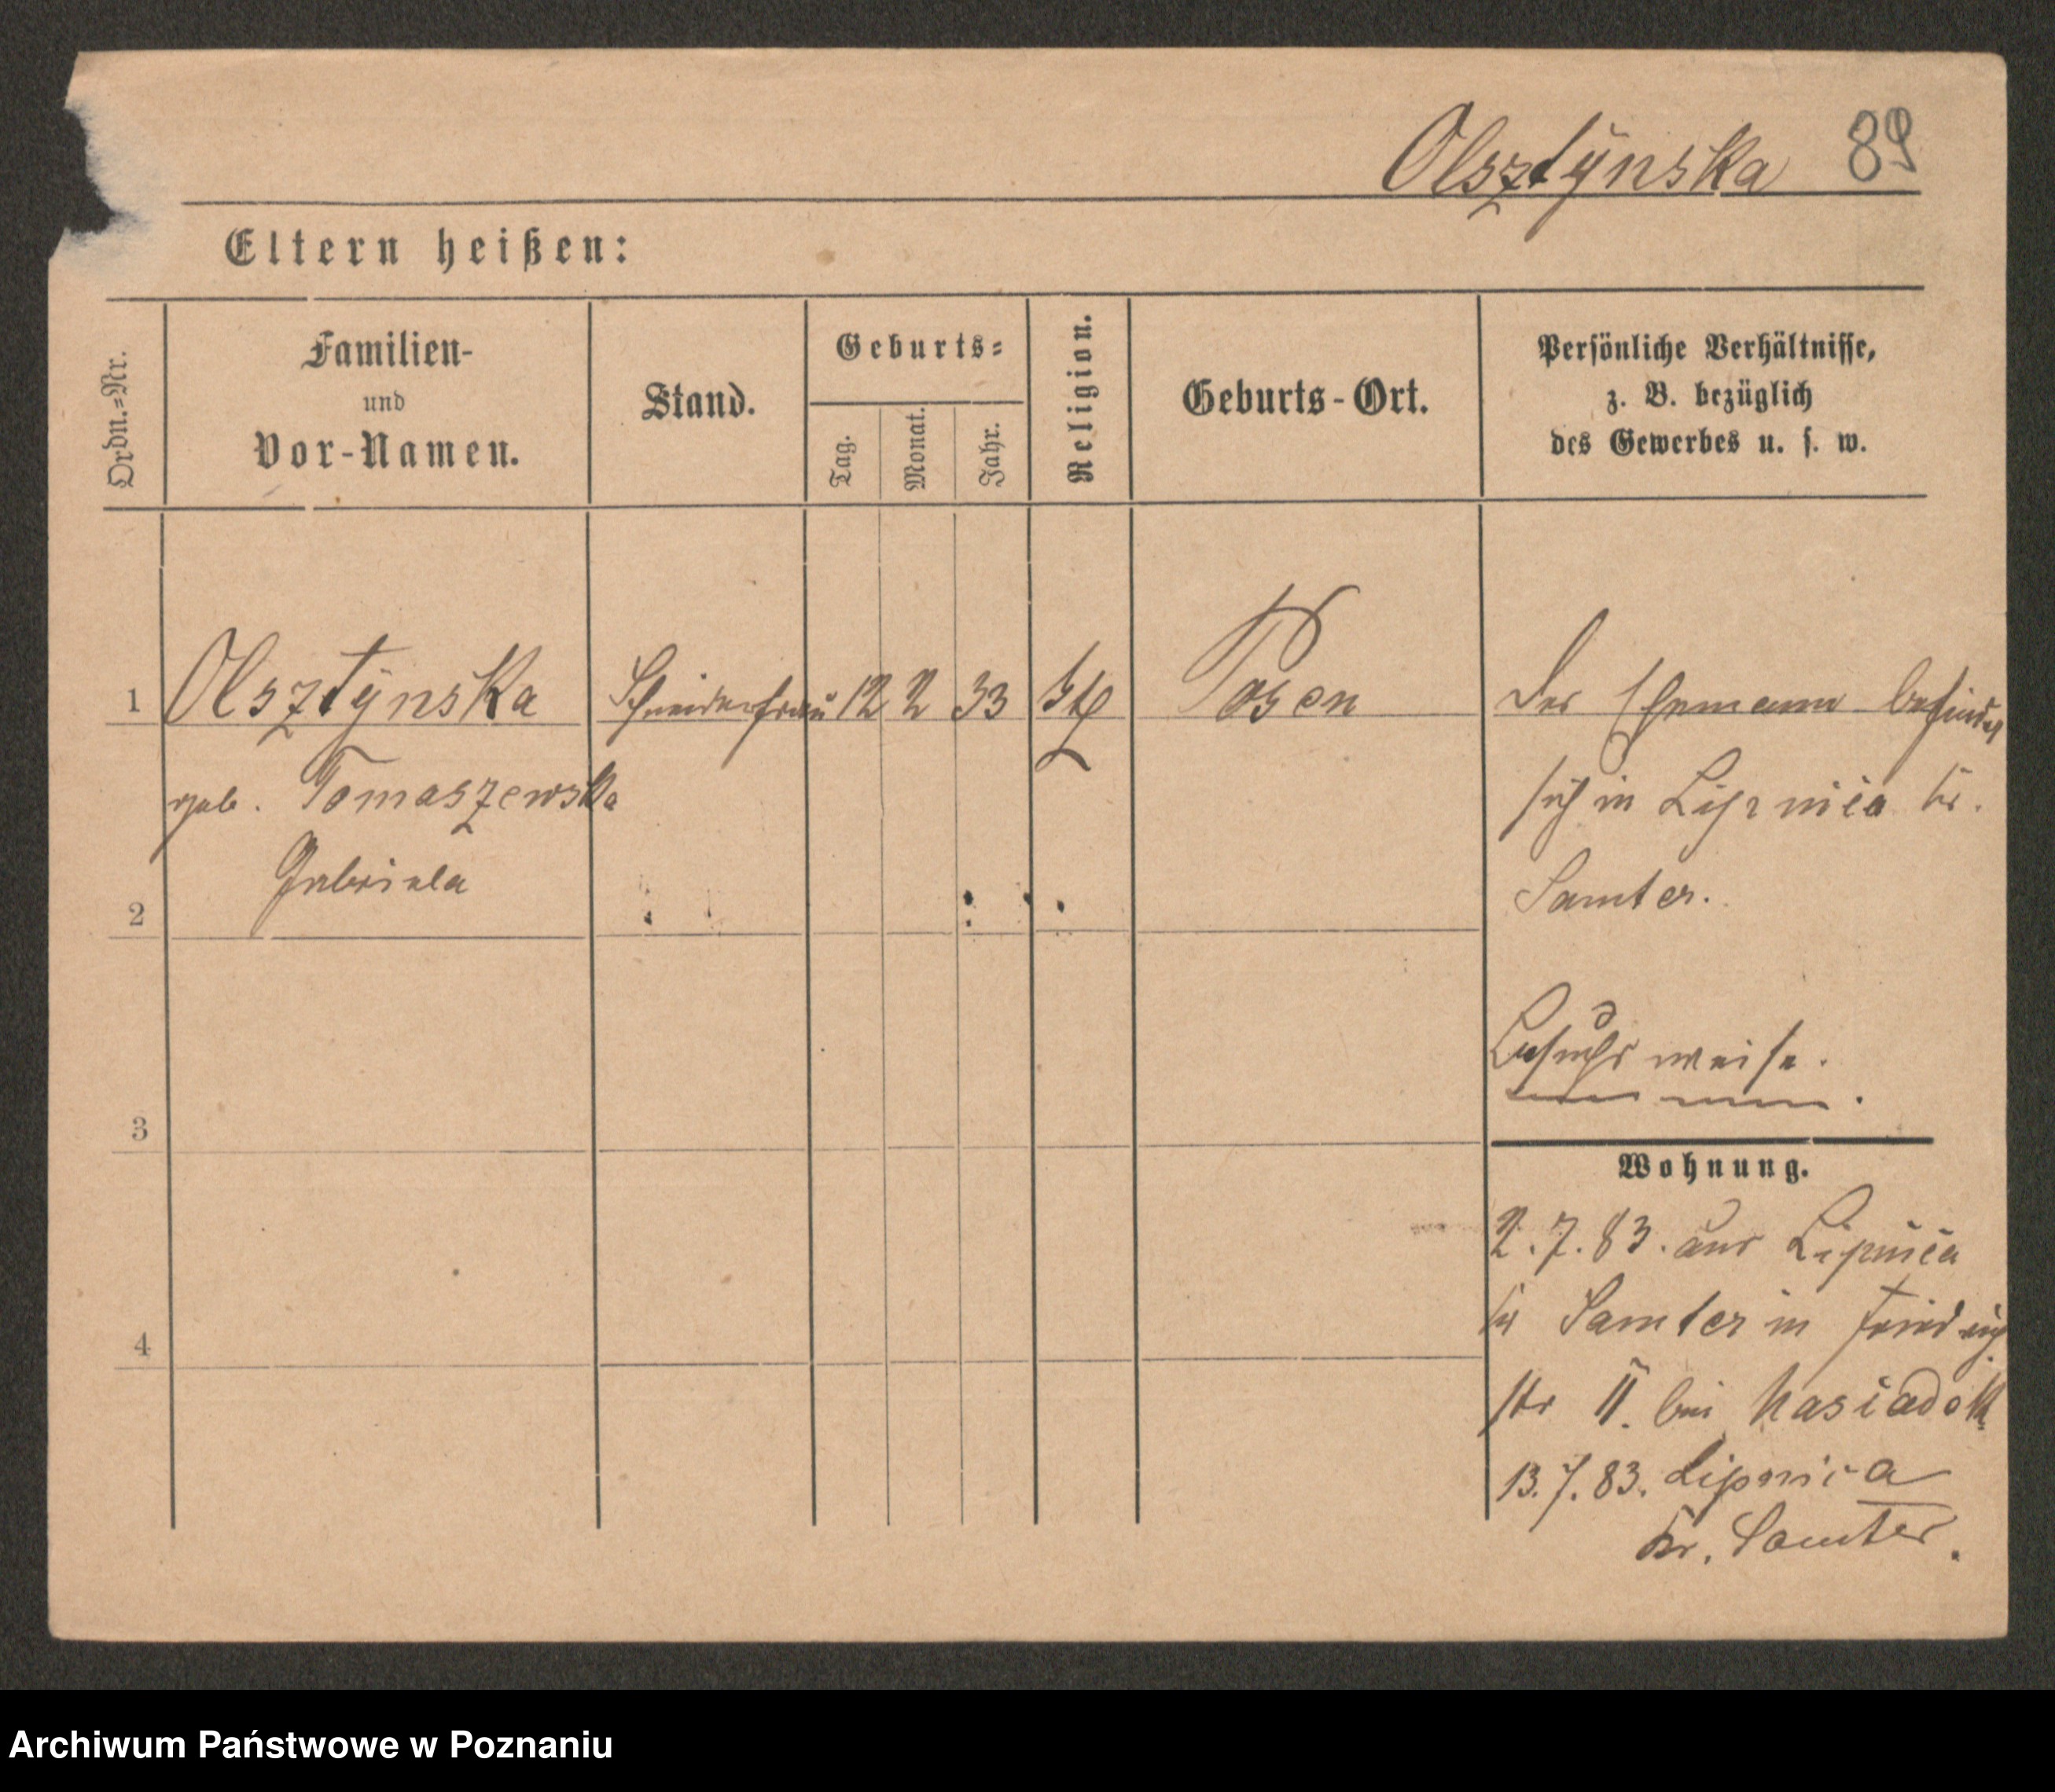 Olsztÿnska 89
Eltern heißen:
Ordn.=Nr.
Familien-
und
Vor-Namen.
Stand.
Geburts=
Tag.
Monat.
Jahr.
Religion.
Geburts-Ort.
Persönliche Verhältnisse,
z. B. bezüglich
des Gewerbes u. s. w.
1 Olsztÿnska Schneiderfrau 12 2 33 kth Posen
geb. Tomaszewska
Gabriela
2
3
4
Der Ehemann befindet
sich in Lipnica Kr.
Samter.
Besuchsweise.
Wohnung.
2.7.83. aus Lipnica
Kr Samter in Friedrich
str 11. bei Kasiadek
13.7.83. Lipnica
Kr. Samter.
Archiwum Państwowe w Poznaniu